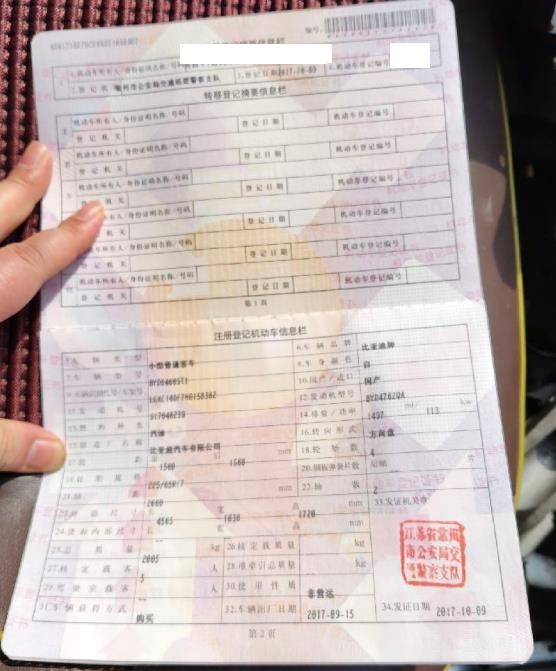 编号
1.机动车所有人/身份证明名称/号码
2.登记机关 常州市公安局交通巡逻警察支队 3.登记日期 2017-10-09 4.机动车登记编号
转移登记摘要信息栏
机动车所有人/身份证明名称/号码
登记机关 登记日期 机动车登记编号
机动车所有人/身份证明名称/号码
登记机关 登记日期 机动车登记编号
机动车所有人/身份证明名称/号码
登记机关 登记日期 机动车登记编号
机动车所有人/身份证明名称/号码
登记机关 登记日期 机动车登记编号
机动车所有人/身份证明名称/号码
登记机关 登记日期 机动车登记编号
机动车所有人/身份证明名称/号码
登记机关 登记日期 机动车登记编号
第1页
注册登记机动车信息栏
车辆类型 小型普通客车 6.车辆品牌 比亚迪牌
车辆型号 8.车身颜色 白
车辆识别代号/车架号 10.国产/进口 国产
发动机号 217048239 12.发动机型号 BYD476ZQA
燃料种类 汽油 14.排量/功率 1497 ml/ 113 kw
制造厂名称 比亚迪汽车有限公司 16.转向形式 方向盘
轮距 1560 1560 mm 18.轮胎数 4
轮胎规格 225/65R17 20.钢板弹簧片数 后轴 片
轴距 2660 mm 22.轴数 2
外廓尺寸 长 4565 宽 1830 高 1720 mm 33.发证机关章
24.货厢内部尺寸 长 宽 高 mm
25.总质量 2005 kg 26.核定载质量 kg
27.核定载客 5 人 28.准牵引总质量 kg
29.驾驶室载客 人 30.使用性质 非营运
31.车辆获得方式 购买 32.车辆出厂日期 2017-09-15 34.发证日期 2017-10-09
江苏省常州
市公安局交
警察支队
第2页